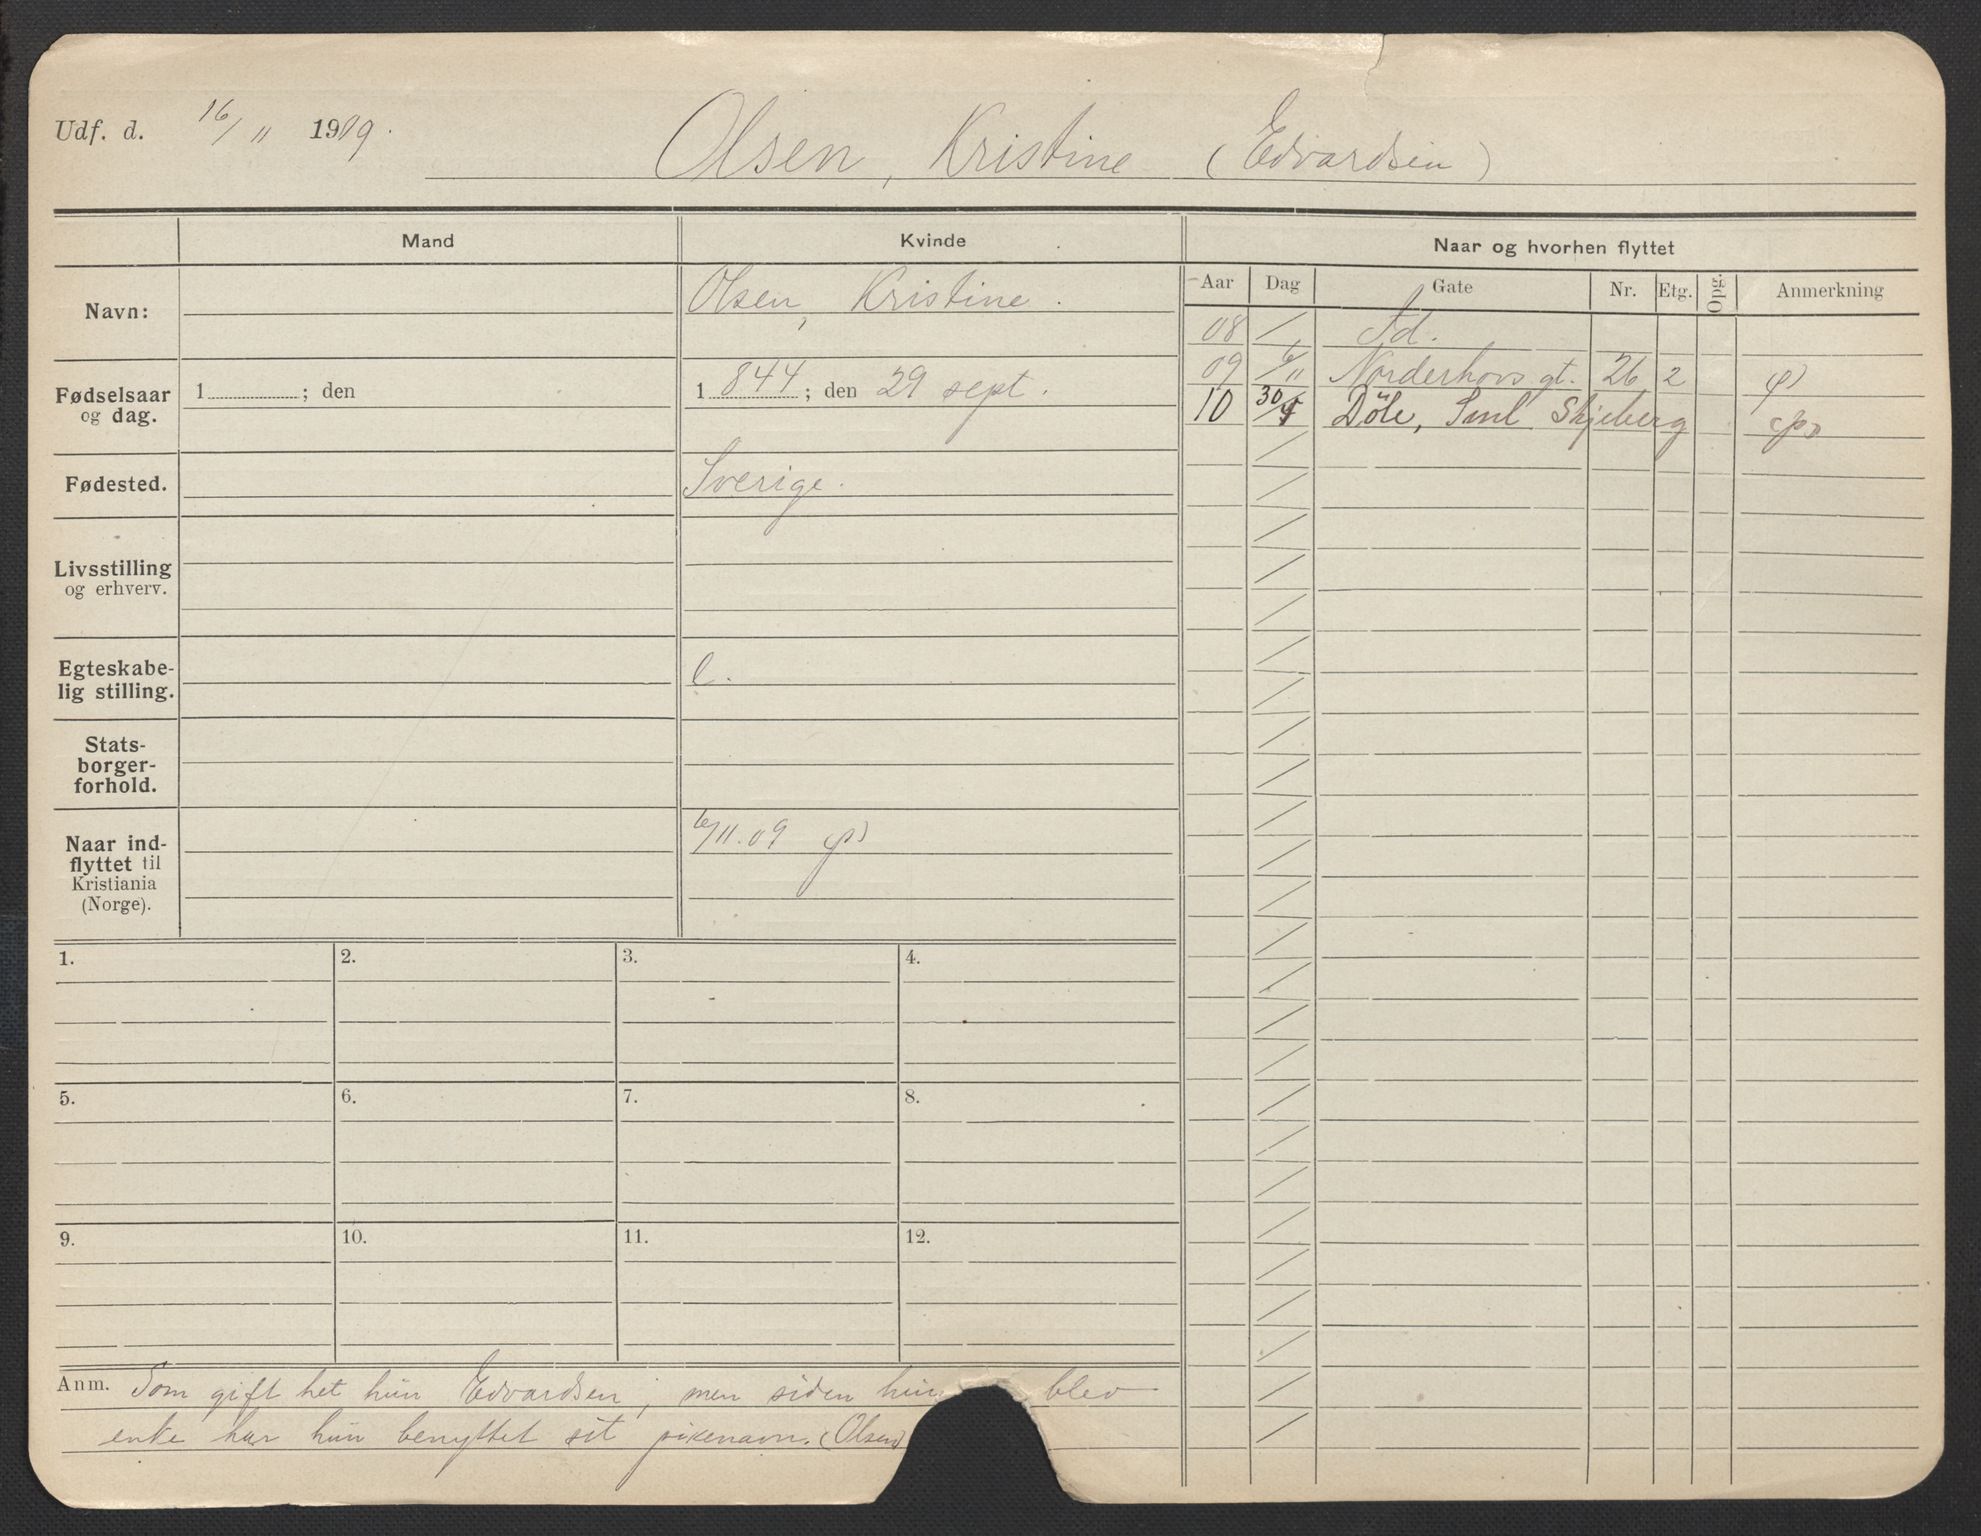 Udf. d. 16/11 1909.
Olsen, Kristine (Edvardsen)
Mand
Kvinde
Naar og hvorhen flyttet
Aar Dag Gate Nr. Etg. Opg. Anmerkning
Navn:
Olsen, Kristine.
08 / Ad.
09 6/11 Norderhovs gt. 26 2 (p)
10 30/4 Döle, Sml Skjeberg (p)
Fødselsaar
og dag.
1 ; den
1 844 ; den 29 sept.
Fødested.
Sverige.
Livsstilling
og erhverv.
Egteskabe-
lig stilling.
e.
Stats-
borger-
forhold.
Naar ind-
flyttet til
Kristiania
(Norge).
6/11.09 (p)
1. 2. 3. 4.
5. 6. 7. 8.
9. 10. 11. 12.
Anm. Som gift het hun Edvardsen, men siden hun blev
enke har hun benyttet sit pikenavn. (Olsen)